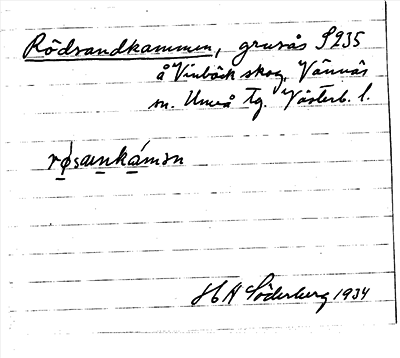 Rödsandkammen, grusås S235
å Vinbäck skog, Vännäs
sn. Umeå tg. Västerb. l.
røsaṇnkámən
H A Söderberg 1934